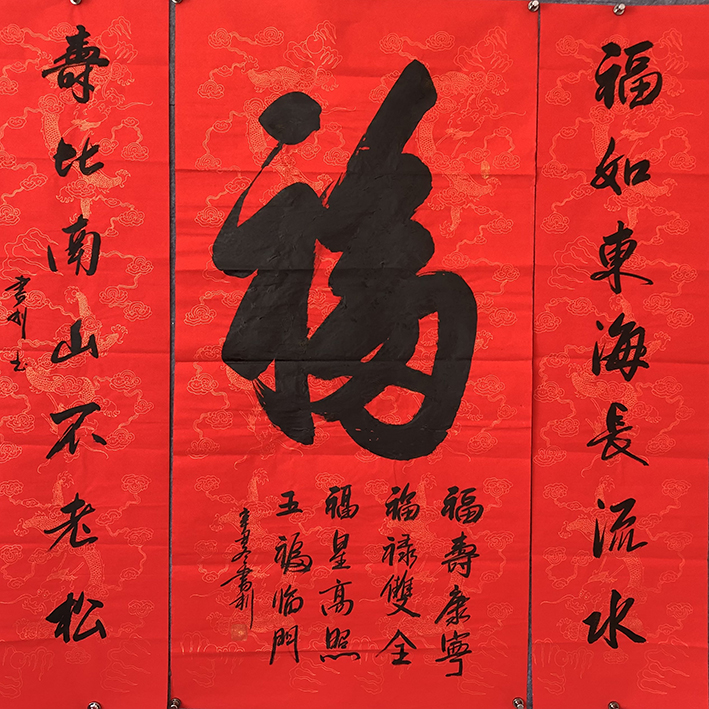 福如東海長流水
福
福壽康寧
福禄雙全
福星高照
五福临門
辛丑冬書利
壽比南山不老松
書利书